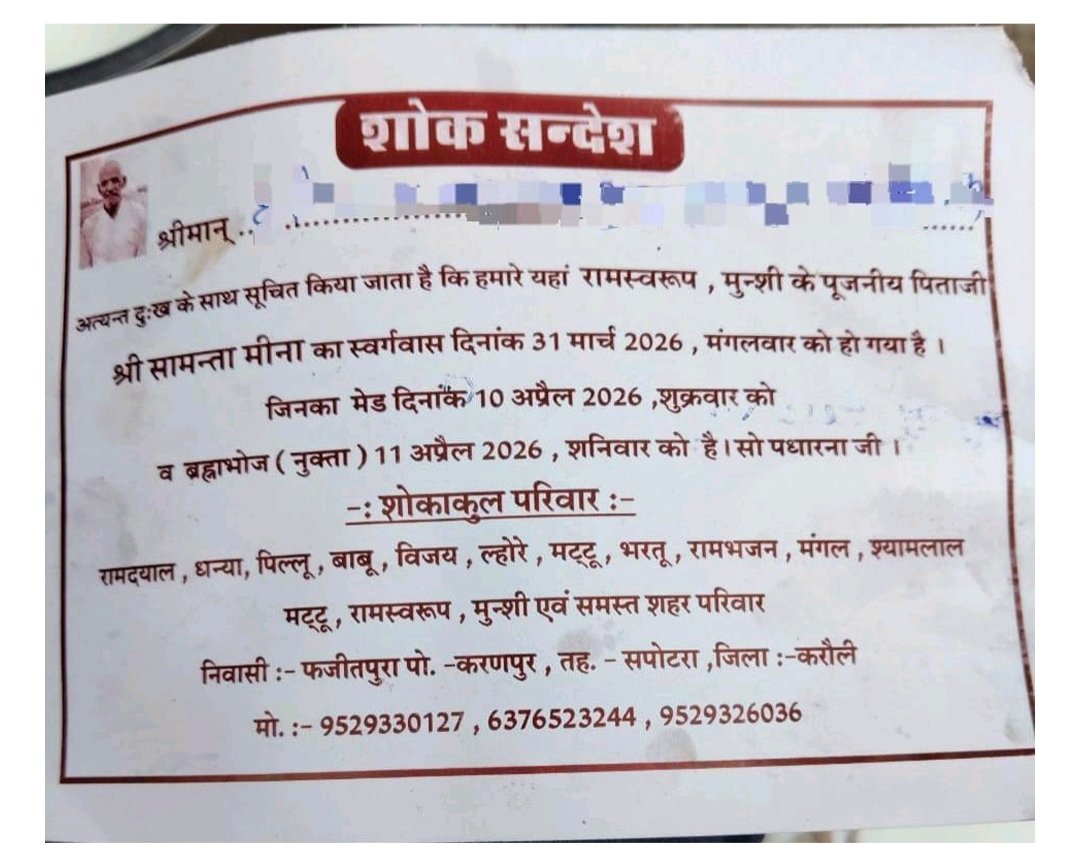 शोक सन्देश
श्रीमान् ..
अत्यन्त दुःख के साथ सूचित किया जाता है कि हमारे यहां रामस्वरूप , मुन्शी के पूजनीय पिताजी
श्री सामन्ता मीना का स्वर्गवास दिनांक 31 मार्च 2026 , मंगलवार को हो गया है ।
जिनका मेड दिनांक 10 अप्रैल 2026 ,शुक्रवार को
व ब्रह्मभोज ( नुक्ता ) 11 अप्रैल 2026 , शनिवार को है। सो पधारना जी ।
-: शोकाकुल परिवार :-
रामदयाल , धन्या, पिल्लू , बाबू , विजय , ल्होरे , मट्टू , भरतू , रामभजन , मंगल , श्यामलाल
मट्टू , रामस्वरूप , मुन्शी एवं समस्त शहर परिवार
निवासी :- फजीतपुरा पो. -करणपुर , तह. - सपोटरा ,जिला :-करौली
मो. :- 9529330127 , 6376523244 , 9529326036